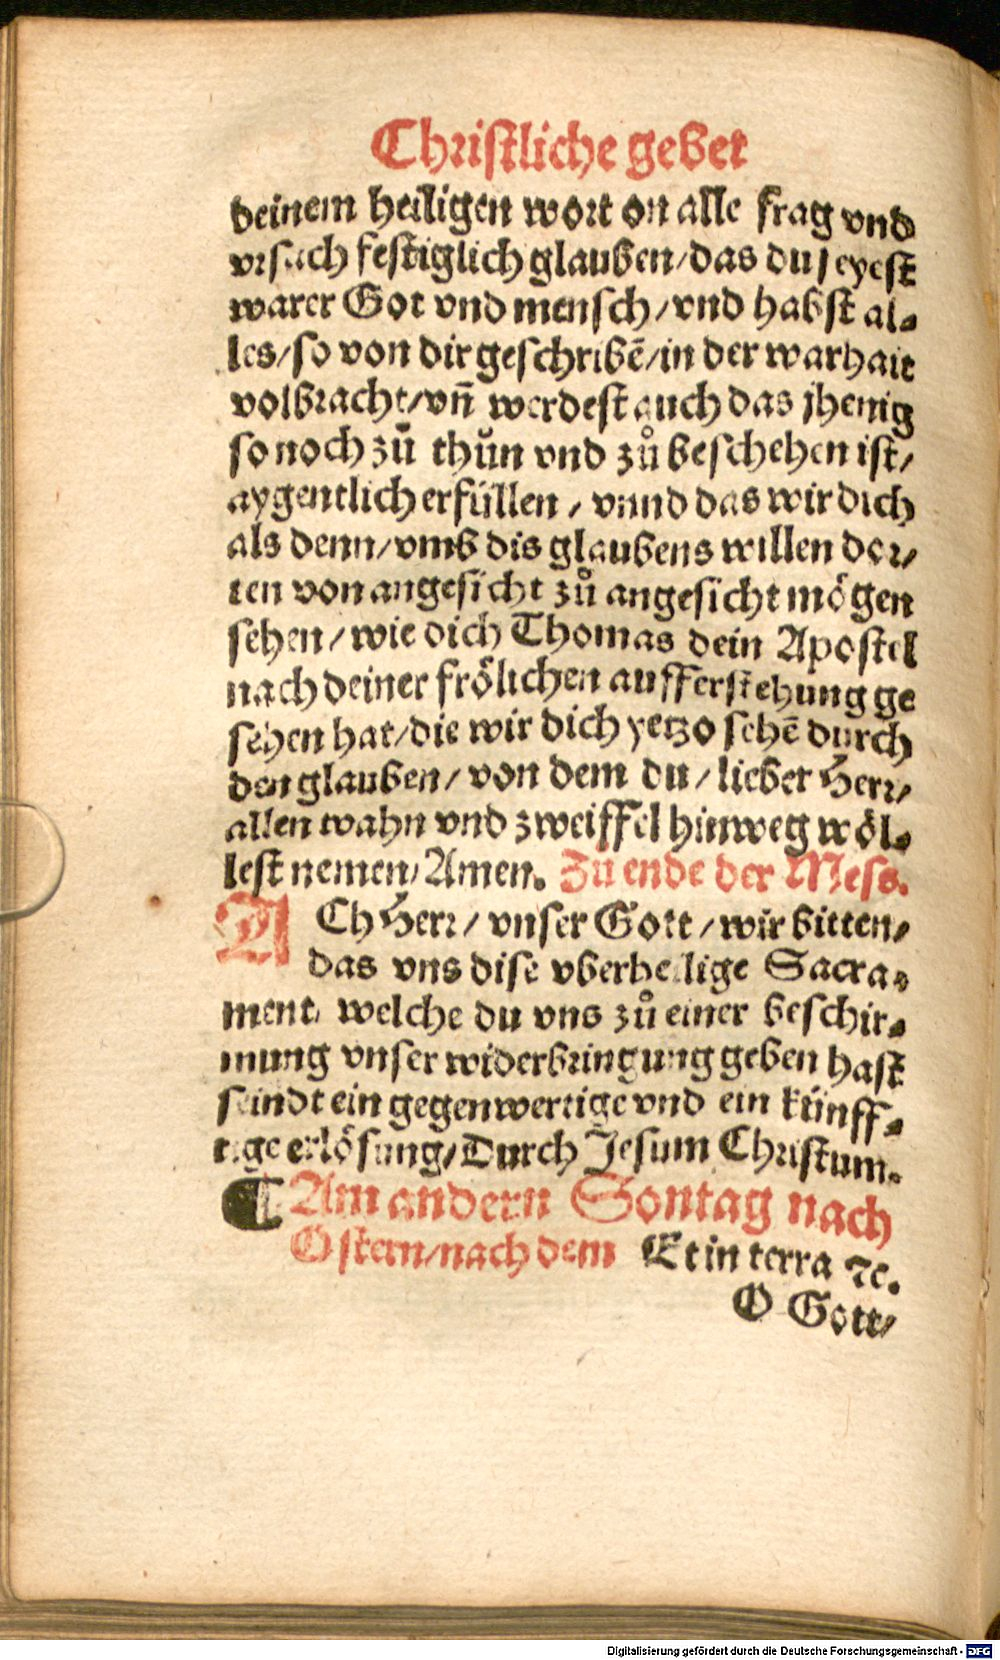 Christliche gebet
deinem heiligen wort on alle frag vnd
vrsach festiglich glauben/das du seyest
warer Got vnd mensch/vnd habst al-
les/so von dir geschribē/in der warhait
volbracht/vn̄ werdest auch das jhenig
so noch zů thůn vnd zů beschehen ist/
aygentlich erfüllen/vnnd das wir dich
als denn/vmb dis glaubens willen dor/
ten von angesicht zů angesicht mögen
sehen/wie dich Thomas dein Apostel
nach deiner frölichen aufferstehung ge
sehen hat/die wir dich yetzo sehē durch
den glauben/von dem du/lieber Herr/
allen wahn vnd zweiffel hinweg wöl-
lest nemen/Amen. Zu ende der Mess.
ACh Herr/vnser Gott/wir bitten/
das vns dise vberheilige Sacra-
ment/welche du vns zů einer beschir-
mung vnser widerbringung geben hast
seindt ein gegenwertige vnd ein künff-
tige erlösung/Durch Jesum Christum.
¶ Am andern Sontag nach
Ostern/nach dem Et in terra ⁊c.
O Gott/
Digitalisierung gefördert durch die Deutsche Forschungsgemeinschaft - DFG